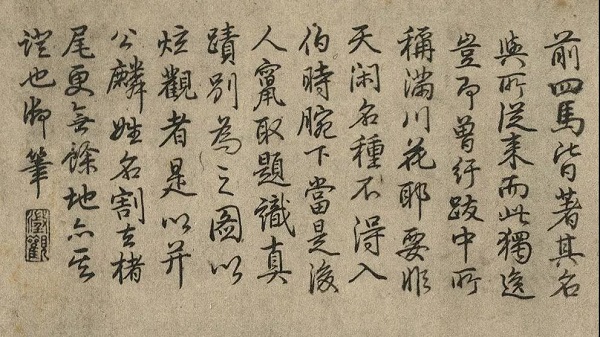 前四馬皆著其名
與所從来而此獨逸
豈即曾紆跋中所
稱滿川花耶要非
天閑名種不得入
伯時腕下當是後
人竄取題識真
蹟別為之圖以
炫觀者是以并
公麟姓名割去楮
尾更無餘地亦其
證也御筆